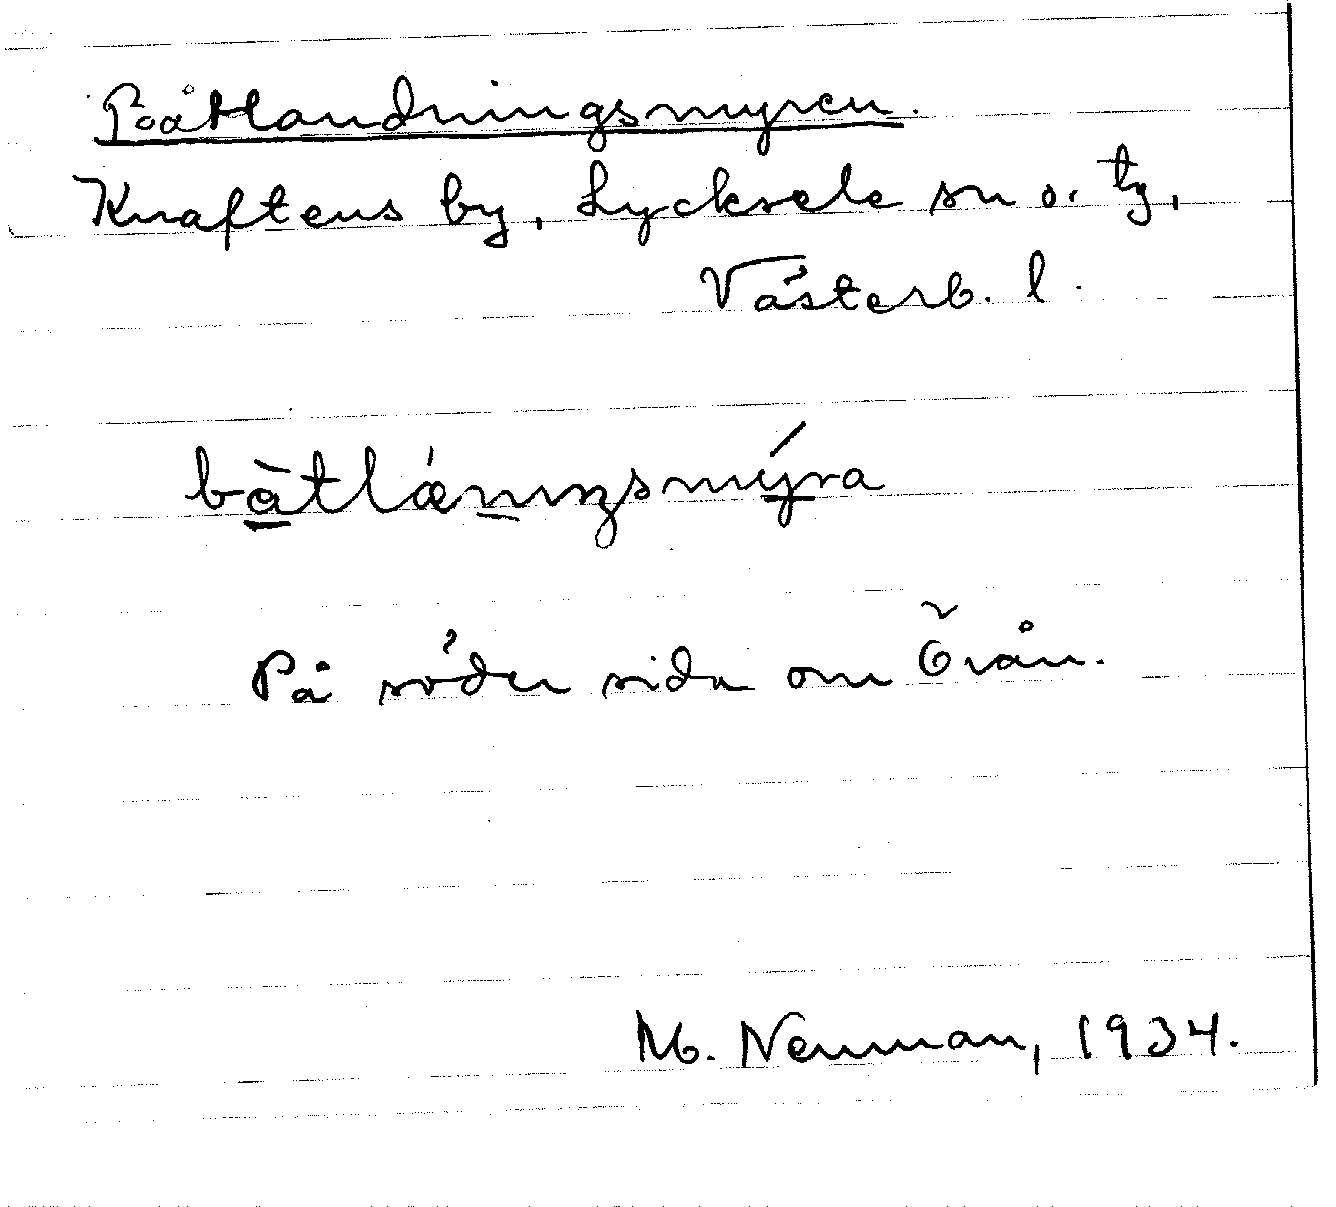 Båtlandningsmyren.
Knaftens by, Lycksele sn o. tg,
Västerb. l.
bàtlǽnıŋsmýra
På söder sida om Örån.
M. Neuman, 1934.